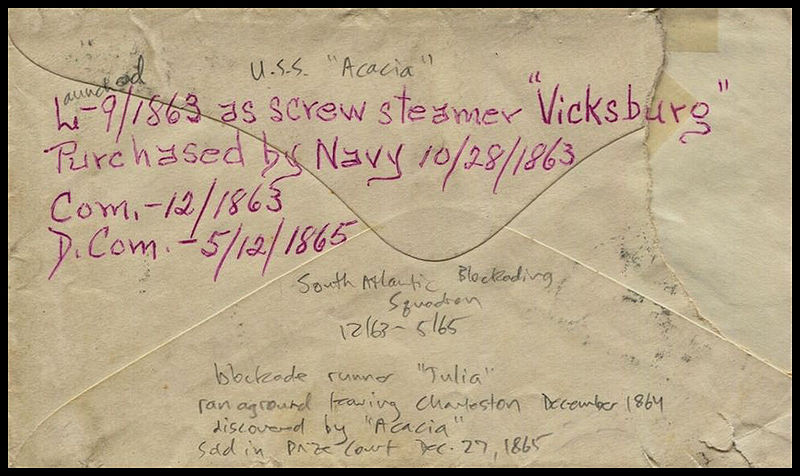 U.S.S. "Acacia"
Launched-9/1863 as screw steamer "Vicksburg"
Purchased by Navy 10/28/1863
Com.-12/1863
D.Com.-5/12/1865
South Atlantic Blockading
Squadron
12/63-5/65
blockade runner "Julia"
ran aground leaving Charleston December 1864
discovered by "Acacia"
sold in Prize Court Dec. 27, 1865